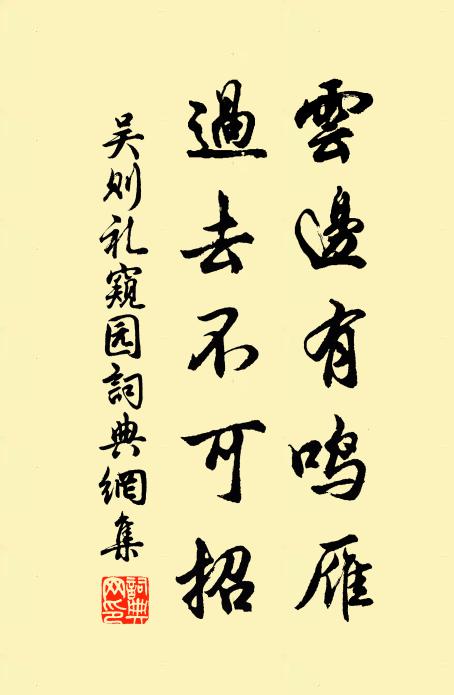 雲邊有鸣雁
過去不可招
吴则礼窥园詞典網集
詞典